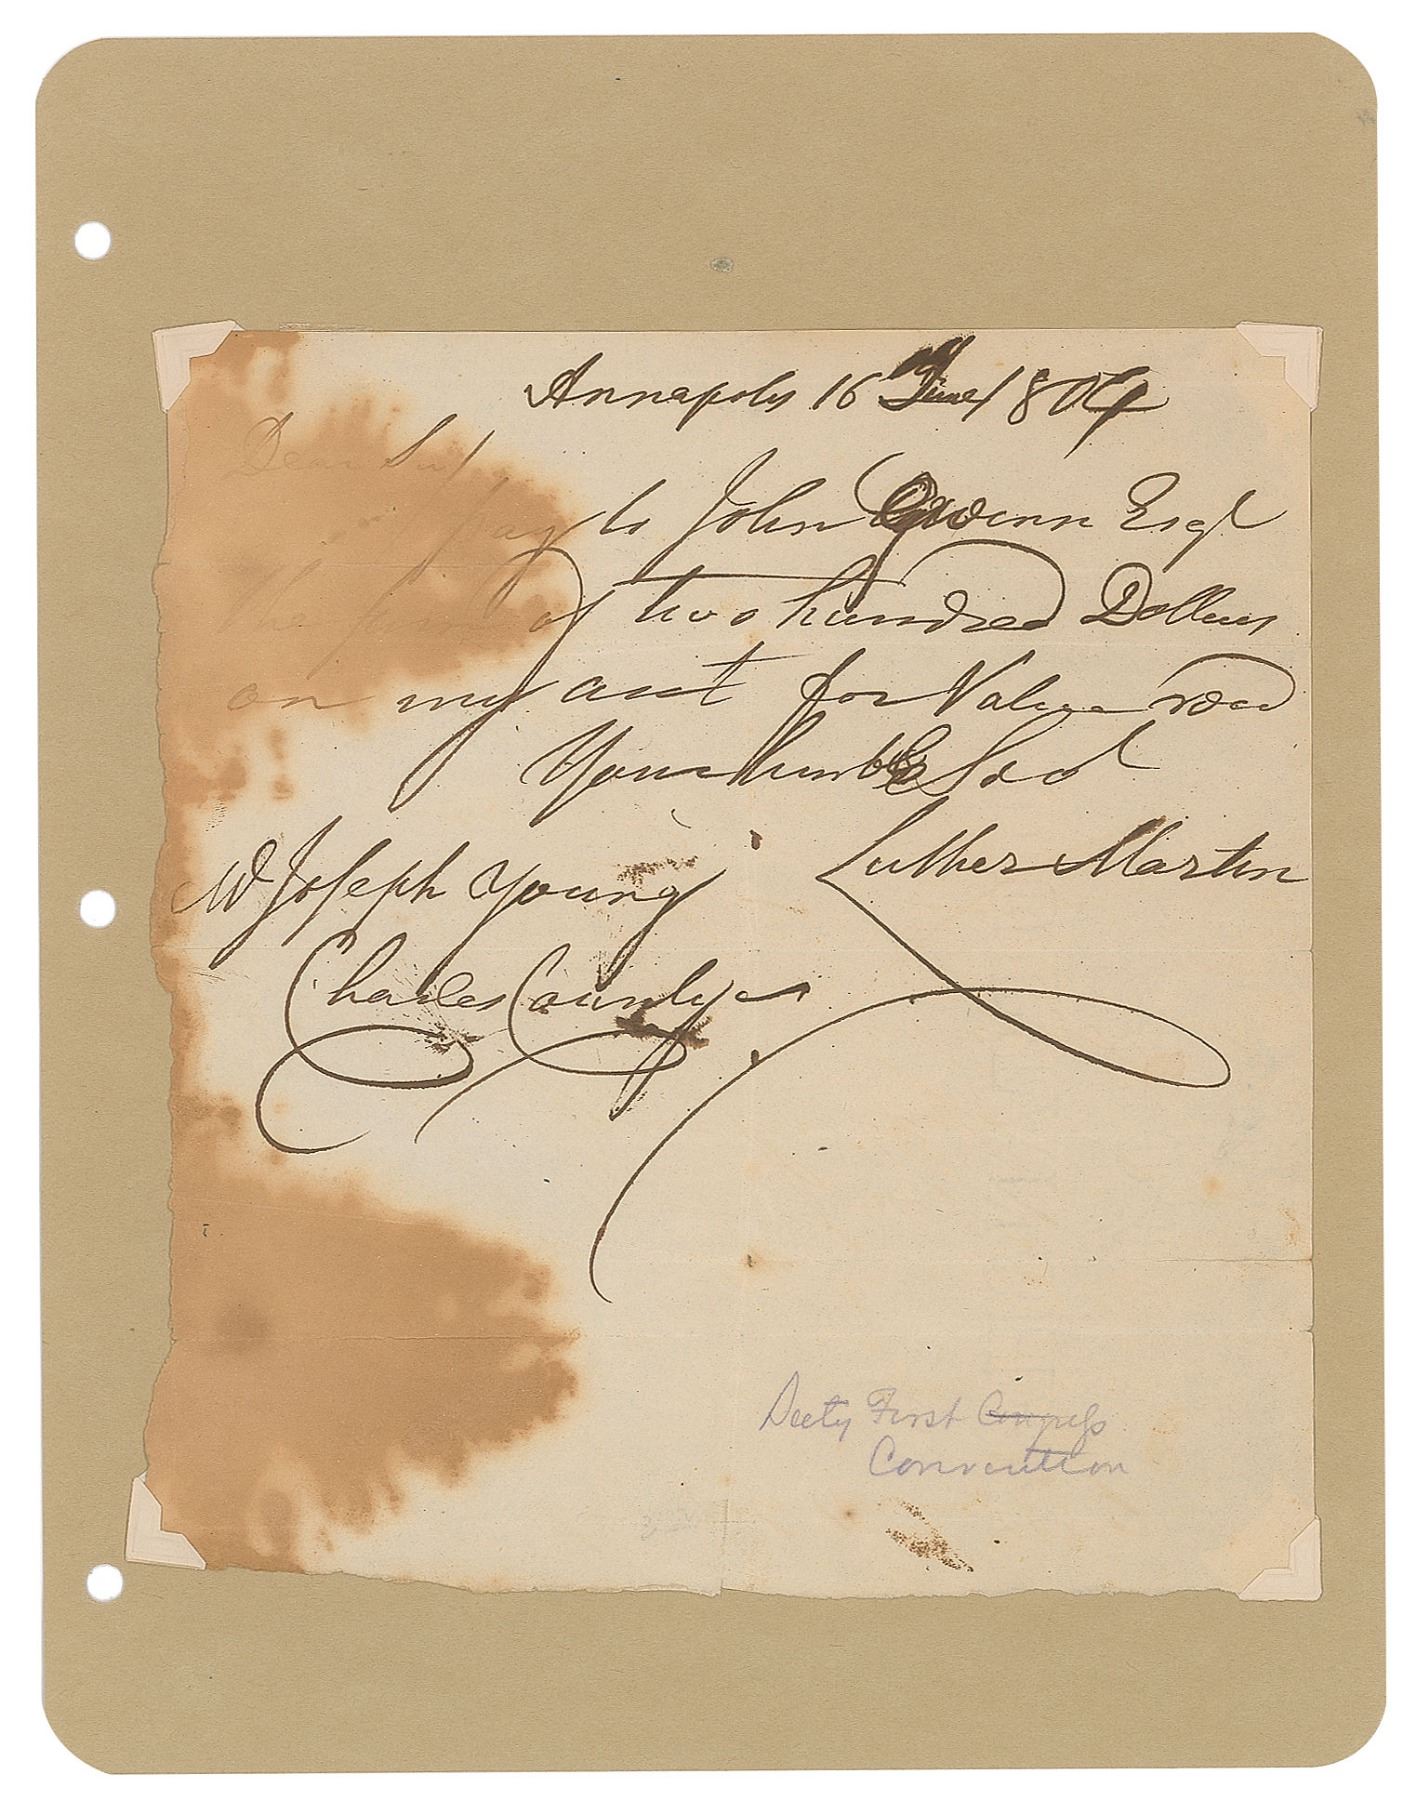 Annapolis 16 June 1804
Dear Sir
pay to John Gwinn Esqr
the sum of two hundred Dollars
on my acct for Value recd
Your humble Servt
Luther Martin
Mr Joseph Young
Charles County
First Congress
Convention